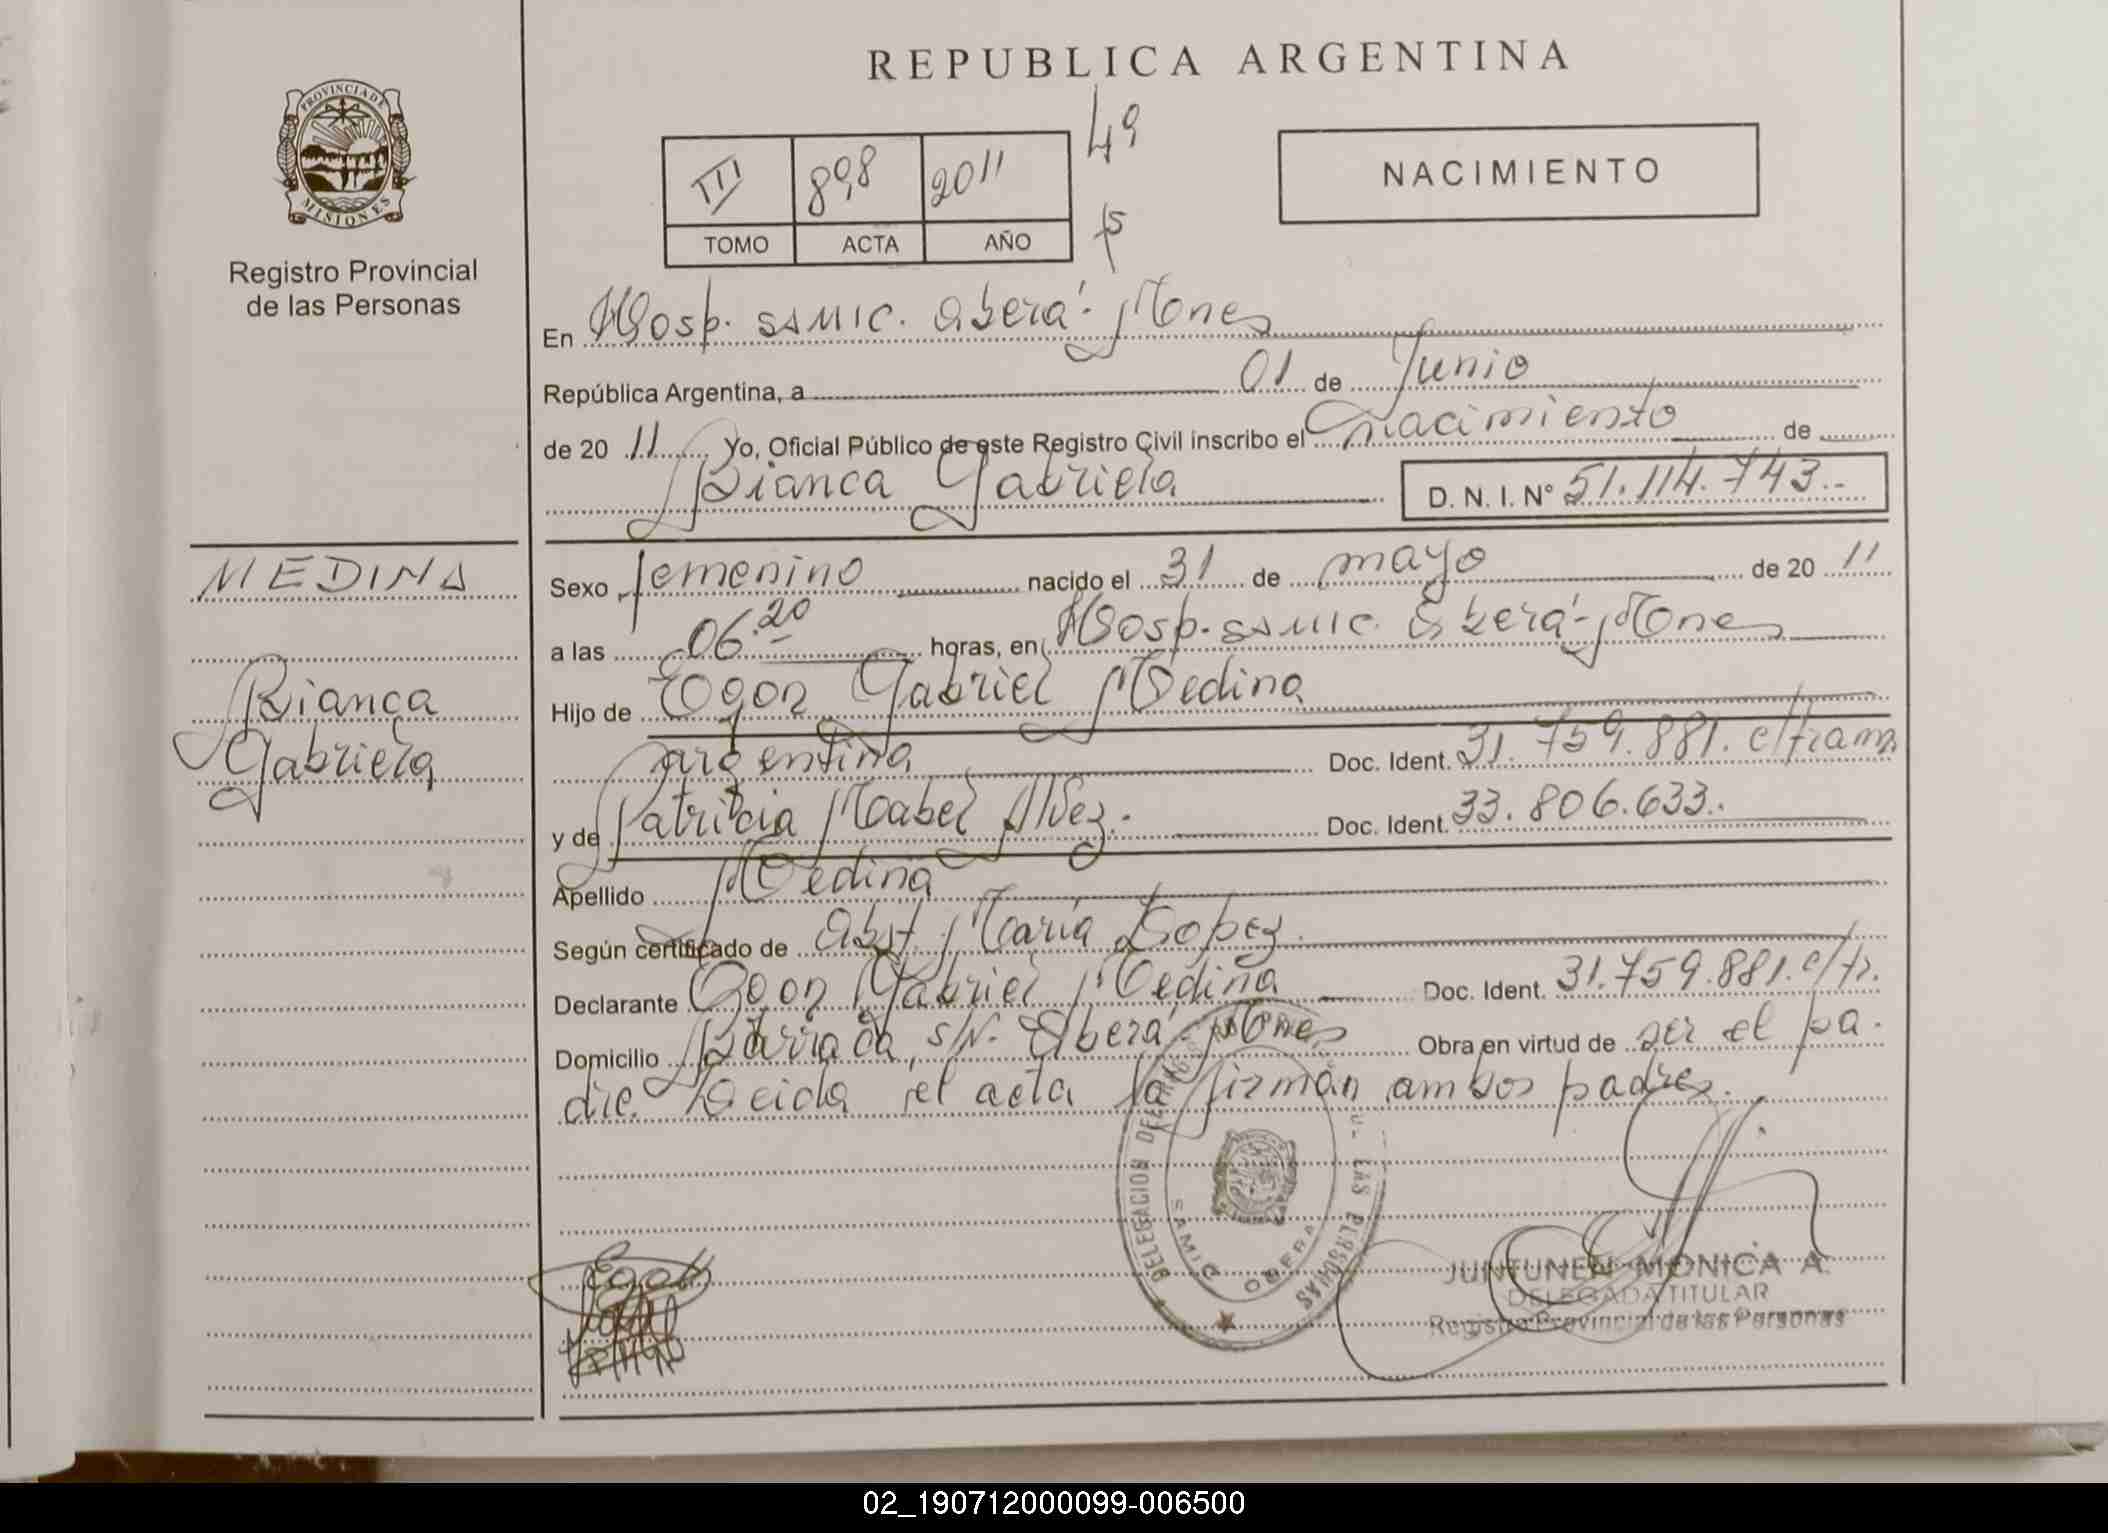 REPUBLICA ARGENTINA
PROVINCIA DE
MISIONES
Registro Provincial
de las Personas
III 898 2011
TOMO ACTA AÑO
49
NACIMIENTO
En Hosp. SAMIC. Oberá - Mnes
República Argentina, a 01 de Junio
de 20 11 Yo, Oficial Público de este Registro Civil inscribo el nacimiento de
Bianca Gabriela D. N. I. N° 51.114.743.-
MEDINA
Bianca
Gabriela
Sexo femenino nacido el 31 de mayo de 20 11
a las 06:20 horas, en Hosp. SAMIC. Oberá - Mnes
Hijo de Egon Gabriel Medina
argentina Doc. Ident. 31.759.881. c/tram.
y de Patricia Mabel Alvez.- Doc. Ident. 33.806.633.
Apellido Medina
Según certificado de Obst. María Lopez.
Declarante Egon Gabriel Medina Doc. Ident. 31.759.881. c/tr.
Domicilio Barrada, s/N. Oberá - Mnes Obra en virtud de ser el pa-
dre. Leida el acta la firman ambos padres.
DELEGACION LAS PERSONAS
SAMIC OBERA
JUNTUNEN MONICA A.
DELEGADA TITULAR
Registro Provincial de las Personas
02_190712000099-006500